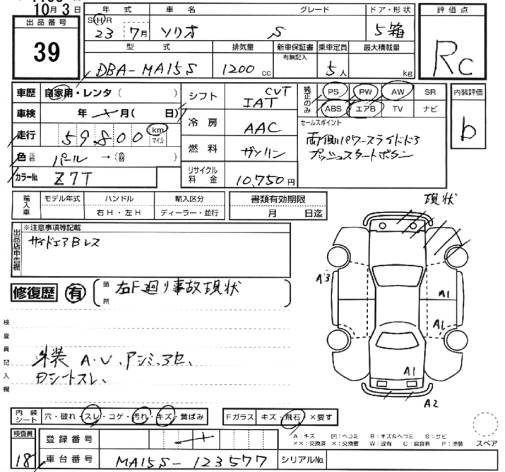 10月3日
出品番号
39
年式 車名 グレード ドア・形状
S H R
23年 7月 ソリオ S 5箱
型式 排気量 新車保証書 有無記入 乗車定員 最大積載量
DBA-MA15S 1200cc 5人 kg
評価点
RC
車歴 自家用・レンタ( )
車検 年 月( 日)
走行 59800 km マイル
色 パール →( )
カラーNo Z7T
シフト CVT IAT
冷房 AAC
燃料 ガソリン
リサイクル料金 10,750円
純正のみ PS PW AW SR
ABS エアB TV ナビ
セールスポイント
両側パワースライドドア
プッシュスタートボタン
内装評価
b
輸入車 モデル年式 ハンドル 輸入区分 書類有効期限
右H・左H ディーラー・並行 月 日迄
※注意事項等記載
サイドエアBレス
現状
修復歴 有
箇所 右F廻り事故現状
A3
A1
A1
A1
A2
検査員記入欄
外装 A・U、アンミ、3セ、
ロシートスレ、
内装シート 穴・破れ・スレ・コゲ・汚れ・キズ・黄ばみ
Fガラス キズ・飛石・×要す
検査員
18
登録番号
車台番号 MA15S-123577
シリアルNo.
A:キズ U:ヘコミ B:キズ&ヘコミ S:サビ
××:交換済 X:交換要 W:波有 C:腐食 P:塗装
スペア